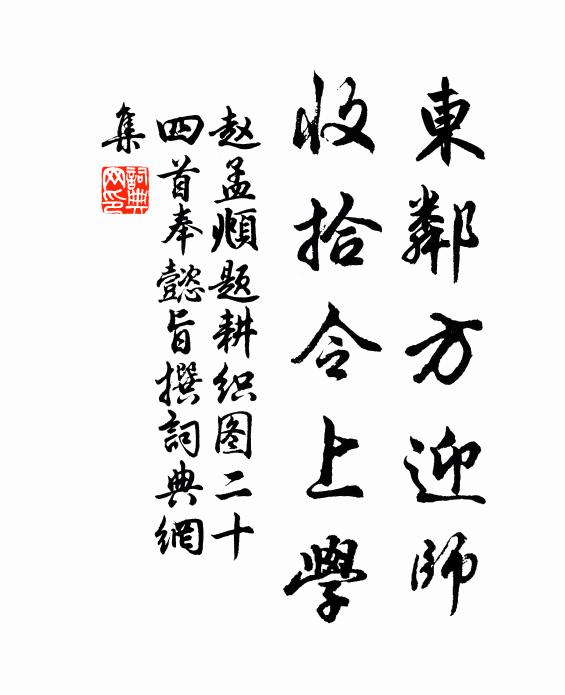 東鄰方迎師
收拾令上學
赵孟頫题耕织图二十
四首奉懿旨撰詞典網
集
詞典
网印